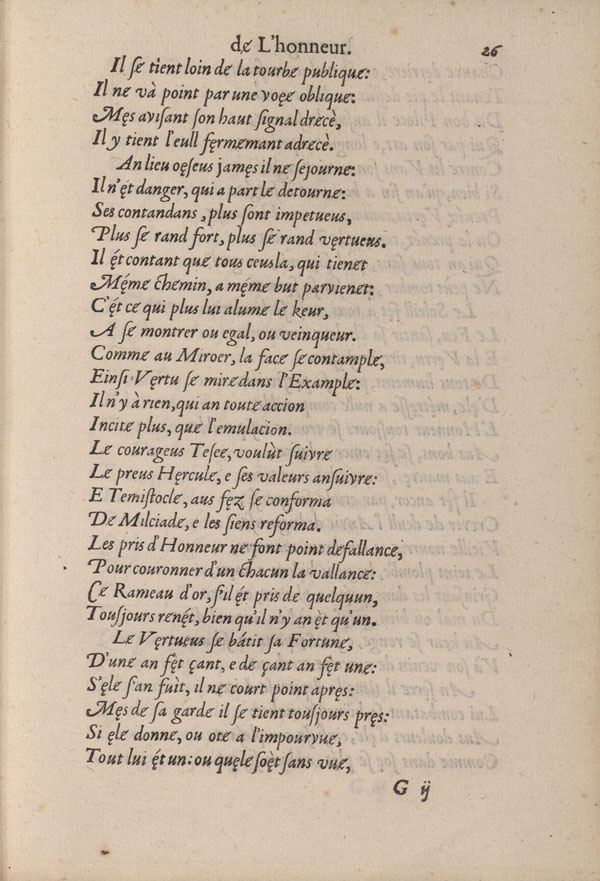 de L'honneur. 26
Il se tient loin de la tourbe publique:
Il ne và point par une voęe oblique:
Męs avisant son haut signal drecè,
Il y tient l'eulh fęrmemant adrecè.
An lieu oęseus jamęs il ne sejourne:
Il n'ę́t danger, qui a part le detourne:
Ses contandans, plus sont impetueus,
Plus se rand fort, plus se rand vęrtueus.
Il ę́t contant que tous ceusla, qui tienet
Mę́me chemin, a mę́me but parvienet:
C'ę́t ce qui plus lui alume le keur,
A se montrer ou egal, ou veinqueur.
Comme au Miroer, la face se contample,
Einsi Vęrtu se mire dans l'Example:
Il n'y à rien, qui an toute accion
Incite plus, que l'emulacion.
Le courageus Tesee, voulùt suivre
Le preus Hęrcule, e ses valeurs ansuivre:
E Temistocle, aus fęz se conforma
De Milciade, e les siens reforma.
Les pris d'Honneur ne font point defallance,
Pour couronner d'un chacun la vallance:
Ce Rameau d'or, s'il ę́t pris de quelquun,
Tousjours renę́t, bien qu'il n'y an ę̀t qu'un.
Le Vęrtueus se bátit sa Fortune,
D'une an fęt çant, e de çant an fęt une:
S'ęle s'an fuìt, il ne court point apręs:
Męs de sa garde il se tient tousjours pręs:
Si ęle donne, ou ote a l'impourvue,
Tout lui ę́t un: ou quęle soę̀t sans vue,
G ij